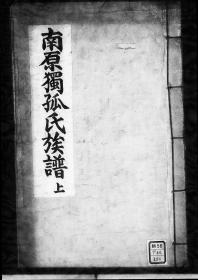 南原獨孤氏族譜 上